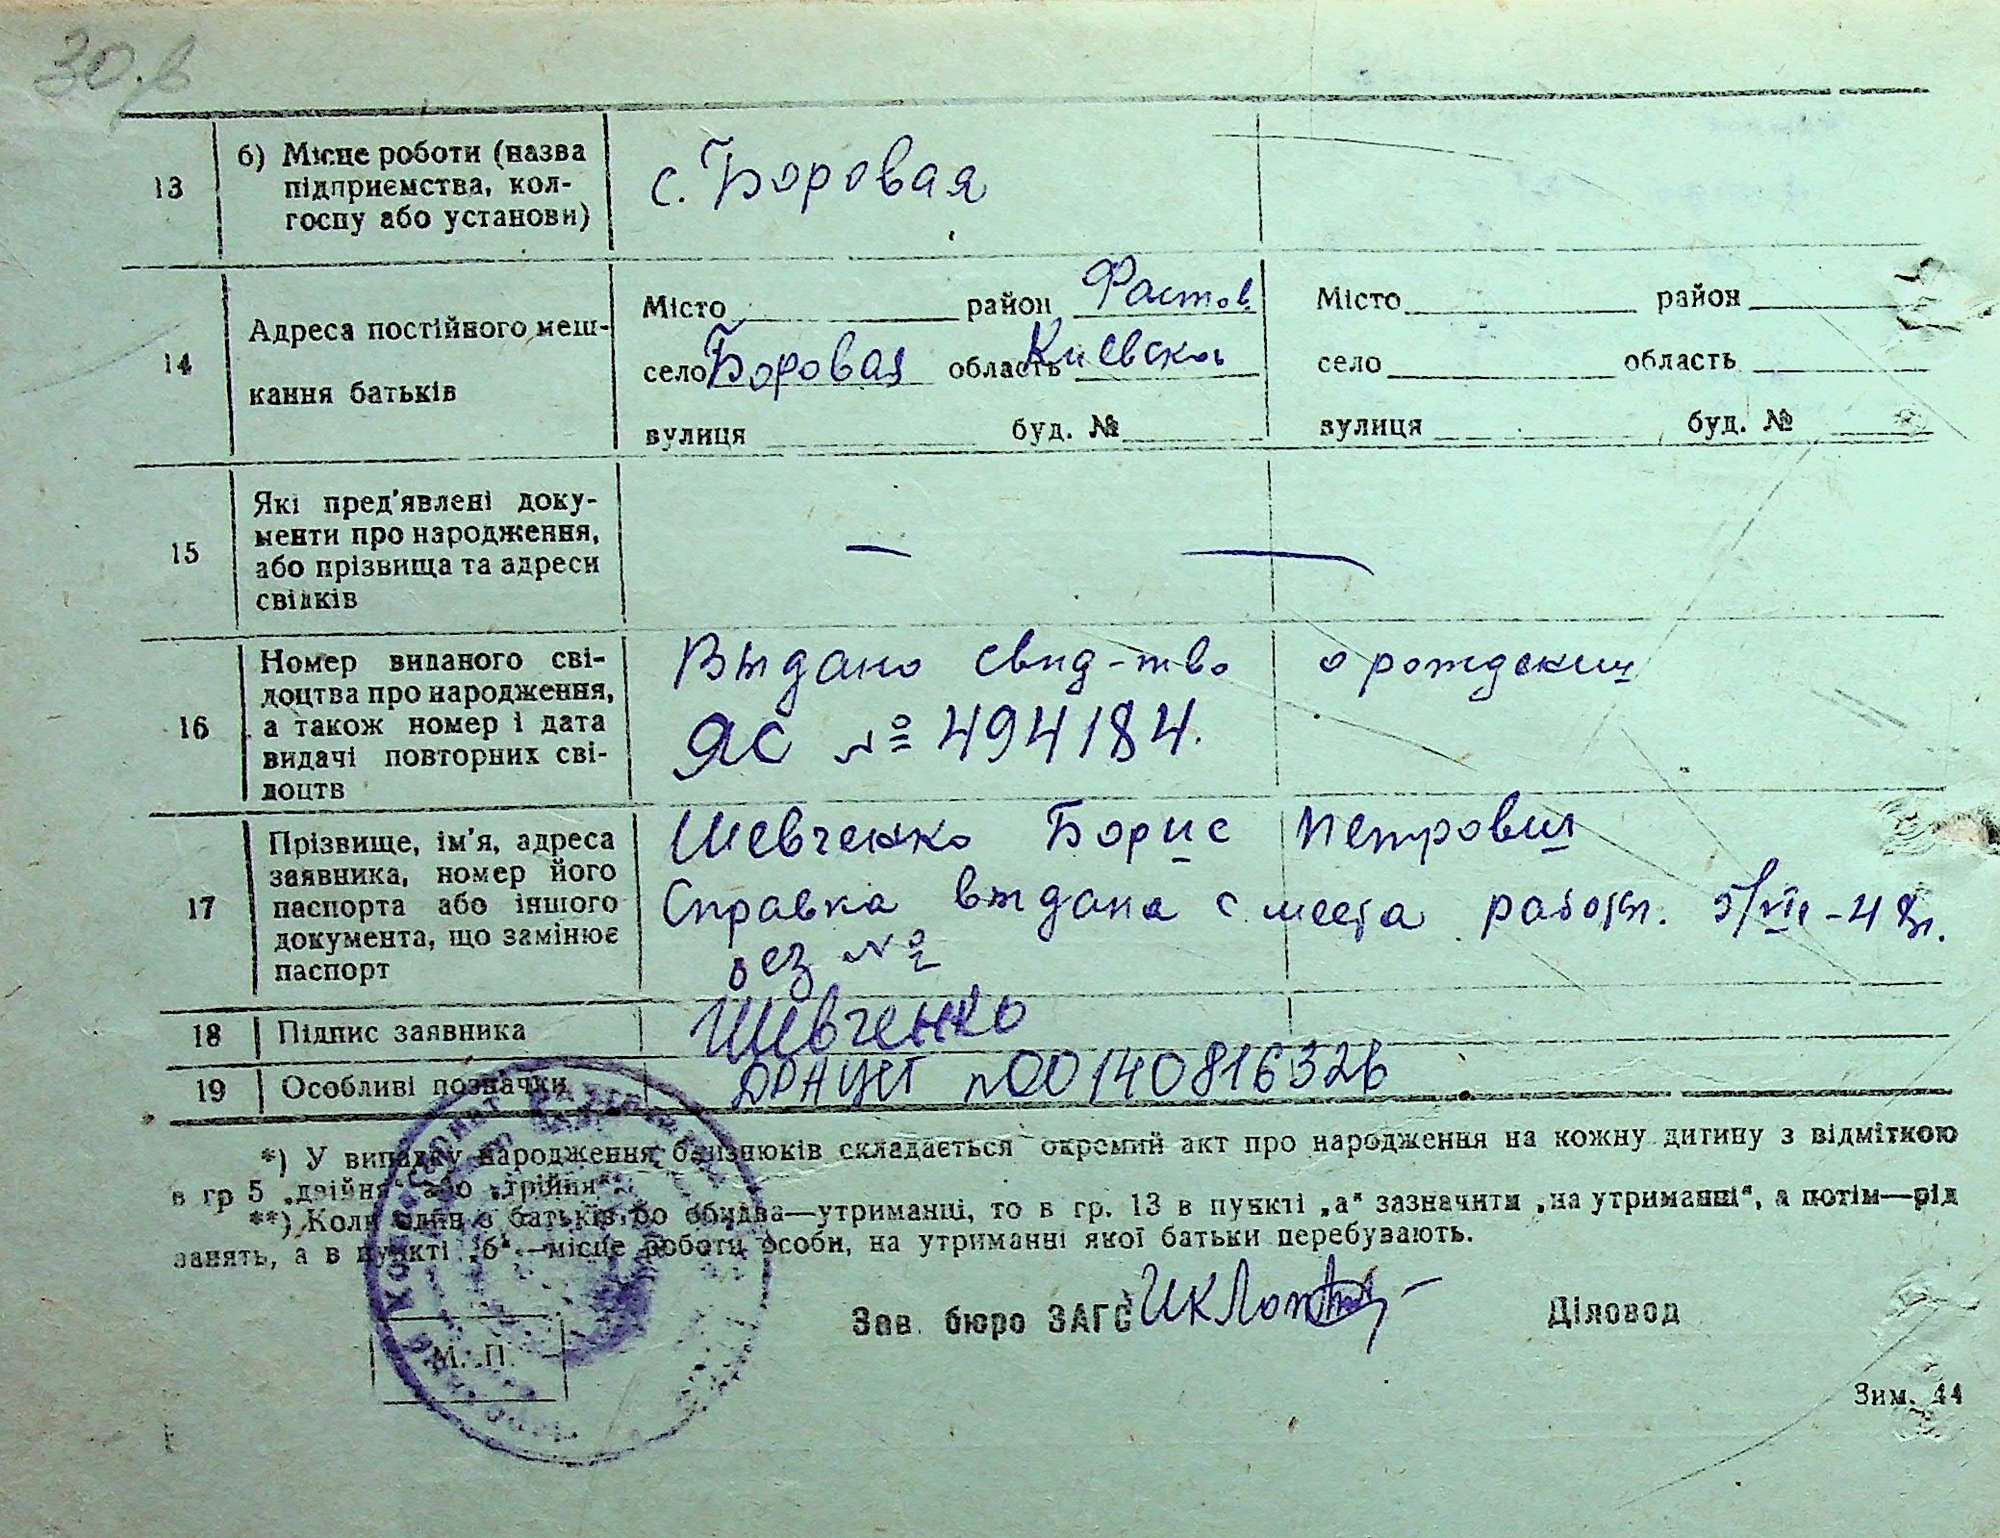 30.в
13
б) Місце роботи (назва
підприємства, кол-
госпу або установи)
с. Боровая
14
Адреса постійного меш-
кання батьків
Місто район Фастов
село Боровая область Киевская
вулиця буд. №
Місто район
село область
вулиця буд. №
15
Які пред'явлені доку-
менти про народження,
або прізвища та адреси
свідків
— —
16
Номер виданого сві-
доцтва про народження,
а також номер і дата
видачі повторних сві-
доцтв
Выдано свид-тво о рождении
ЯС № 494184.
17
Прізвище, ім'я, адреса
заявника, номер його
паспорта або іншого
документа, що замінює
паспорт
Шевченко Борис Петрович
Справка выдана с места работы.
без №
18
Підпис заявника
Шевченко
19
Особливі позначки
ДРАЦСГ №00140816326
*) У випадку народження близнюків складається окремий акт про народження на кожну дитину з відміткою
в гр 5 „двійня“ або „трійня“.
**) Коли один з батьків або обидва—утриманці, то в гр. 13 в пункті „а“ зазначити „на утриманці“, а потім—рід
занять, а в пункті „б“—місце роботи особи, на утриманні якої батьки перебувають.
Зав. бюро ЗАГС
Діловод
М. П.
Зим. 44